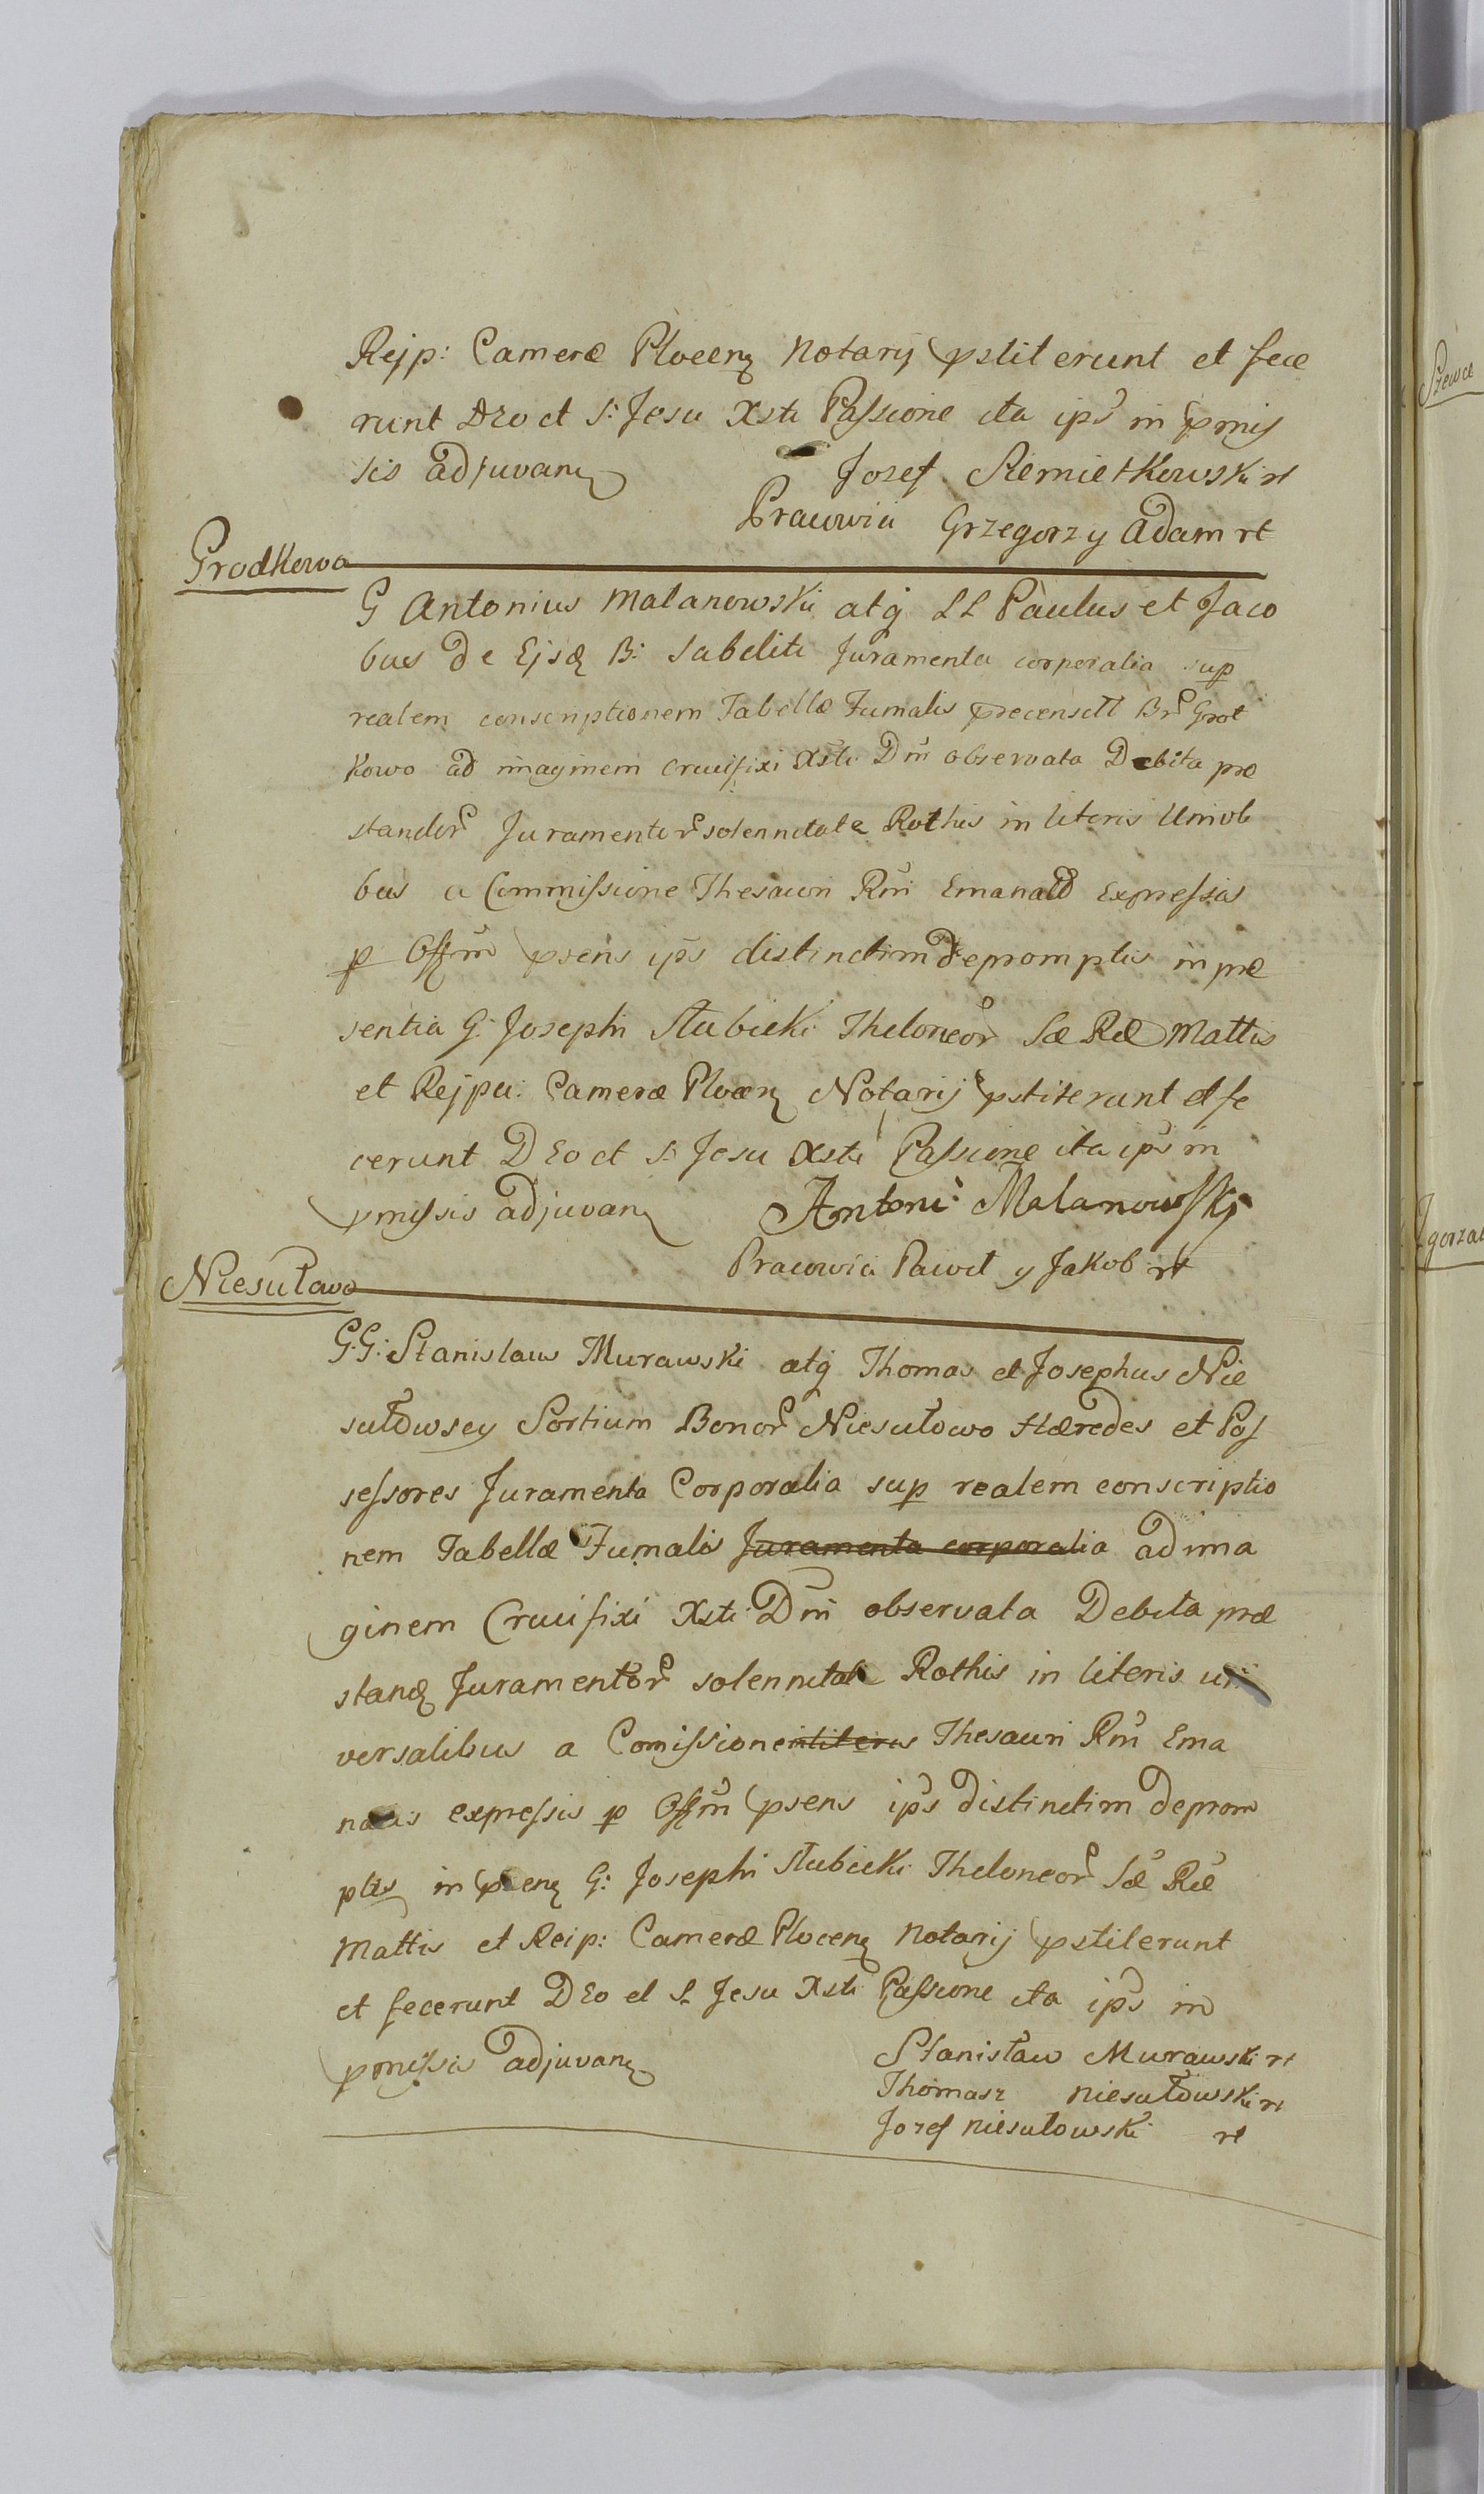 Rejp: Cameræ Plocen Notarij pstiterunt et fece
runt DEo et S: Jesu Xsti Passione ita ips in pmis
sis adjuvan
Jozef Siemiethowski rt
Pracowici Grzegorz y Adam rt
Grodkowo
G Antonius Malanowski atq LL Paulus et Jaco
bus de Ejsd B: Sabditi Juramenta corporalia sup
realem conscriptionem Tabellæ Fumalis præcensitt Br Grot
kowo ad imaginem crucifixi Xsti Dni observata Debita præ
standor Juramentor solennitate Rothis in literis Univlb
bus a Commissione Thesauri Rni Emanatis Expressis
p Offm psens ips distinctim depromptis in præ
sentia G Josephi Słubicki Theloneor Sæ Ræ Mattis
et Rejpu: Cameræ Plocen Notarij pstiterunt et fe
cerunt DEo et S: Jesu Xsti Passione ita ips in
pmissis adjuvan
Antoni Malanowski
Pracowici Paweł y Jakob rt
Niesułowo
G.G: Stanislaus Murawski atq Thomas et Josephus Nie
sułowscy Sortium Bonor Niesułowo Hæredes et Pos
sessores Juramenta Corporalia sup realem conscriptio
nem Tabellæ Fumalis Juramenta corporalia ad ima
ginem Crucifixi Xsti Dni observata Debita præ
stand Juramentor solennitate Rothis in literis uni
versalibus a Comissione in literis Thesauri Rni Ema
natis expressis p Offm psens ips distinctim deprom
ptis in psen G: Josephi Słubicki Theloneor Sæ Ræ
Mattis et Reip: Cameræ Plocen Notarij pstiterunt
et fecerunt DEo et S. Jesu Xsti Passione ita ips in
pmissis adjuvan
Stanisław Murawski rt
Thomasz Niesułowski rt
Jozef Niesułowski rt